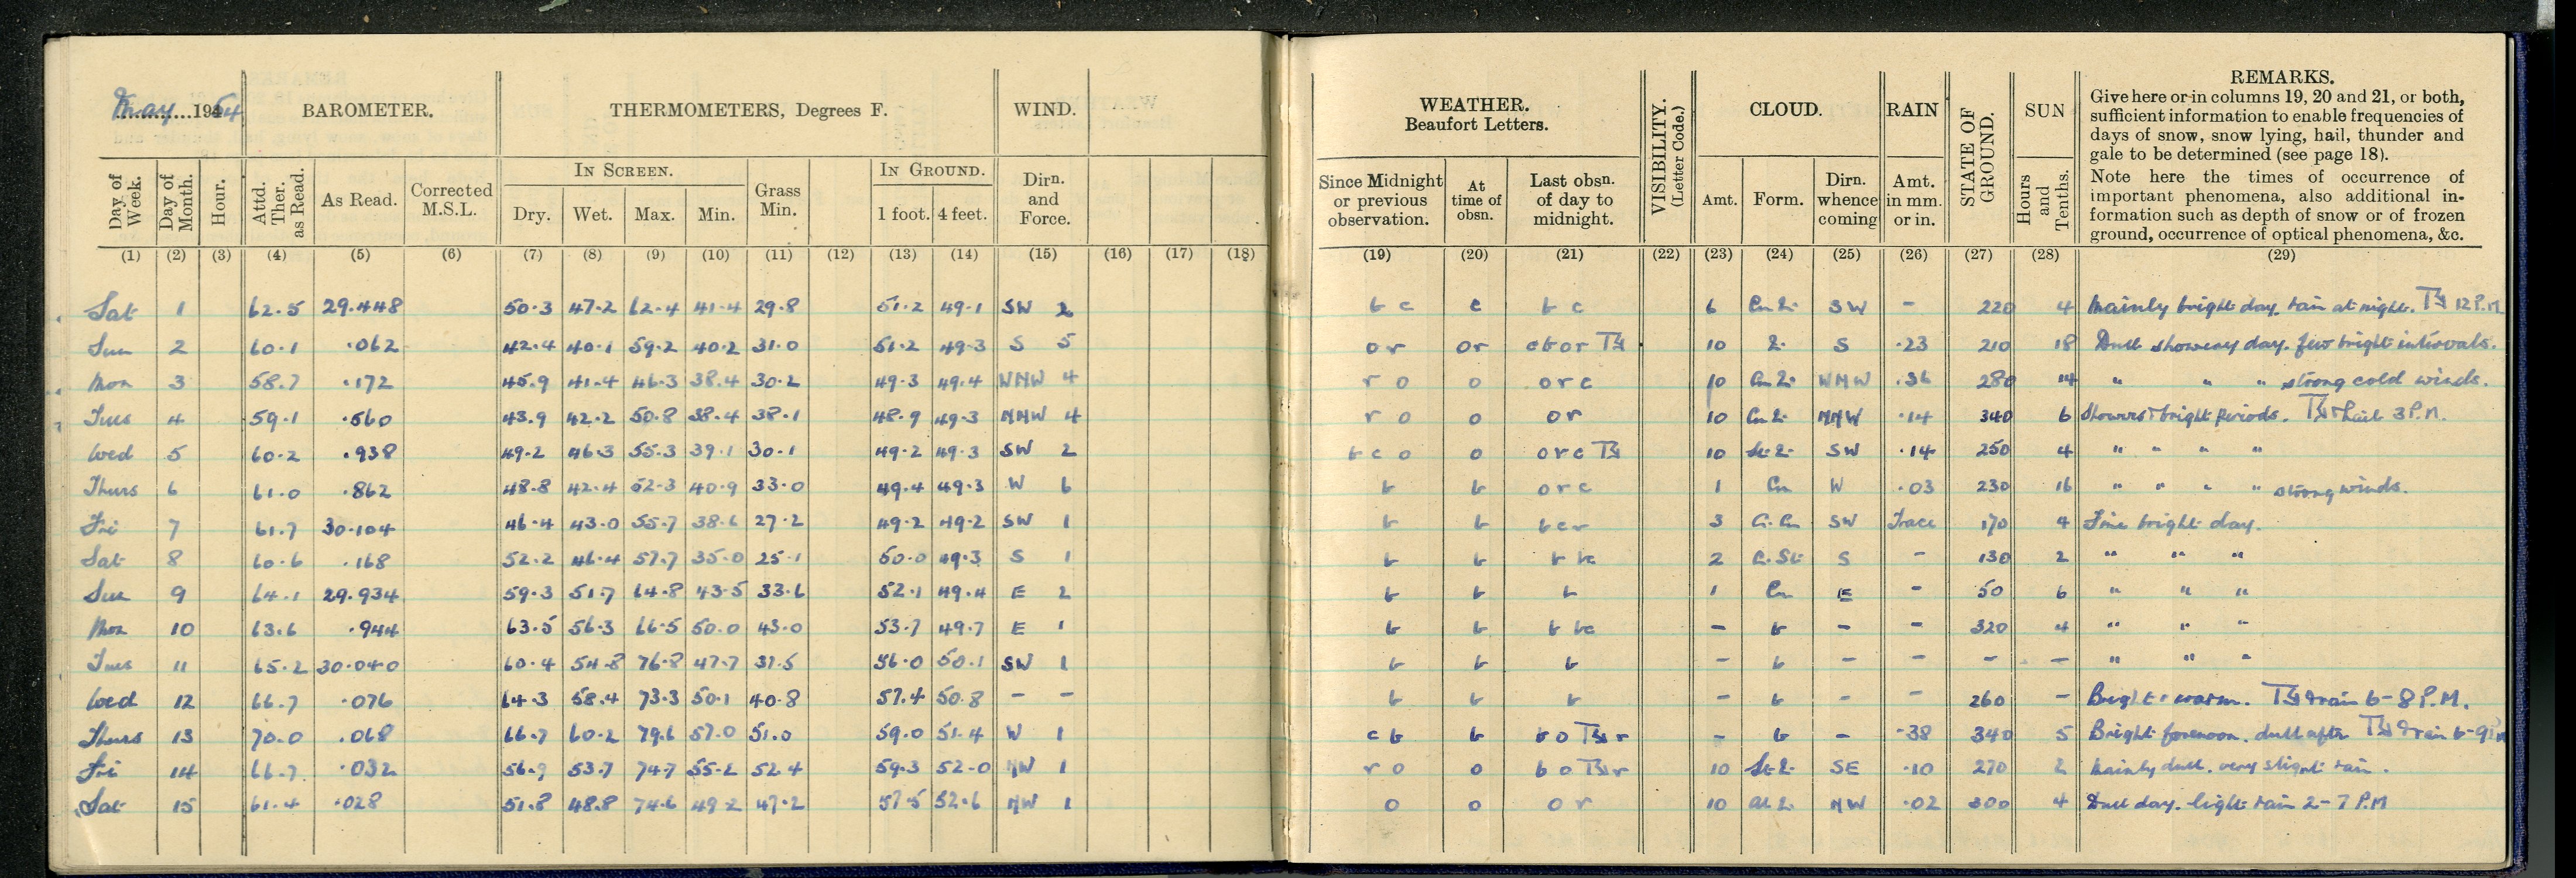 May 1954 BAROMETER. THERMOMETERS, Degrees F. WIND. WEATHER. Beaufort Letters. VISIBILITY. (Letter Code.) CLOUD. RAIN STATE OF GROUND. SUN REMARKS.
Give here or in columns 19, 20 and 21, or both,
sufficient information to enable frequencies of
days of snow, snow lying, hail, thunder and
gale to be determined (see page 18).
Note here the times of occurrence of
important phenomena, also additional in-
formation such as depth of snow or of frozen
ground, occurrence of optical phenomena, &c.
IN SCREEN. IN GROUND.
Day of Week. Day of Month. Hour. Attd. Ther. as Read. As Read. Corrected M.S.L. Dry. Wet. Max. Min. Grass Min. 1 foot. 4 feet. Dirn. and Force. Since Midnight or previous observation. At time of obsn. Last obsn. of day to midnight. Amt. Form. Dirn. whence coming Amt. in mm. or in. Hours and Tenths.
(1) (2) (3) (4) (5) (6) (7) (8) (9) (10) (11) (12) (13) (14) (15) (16) (17) (18) (19) (20) (21) (22) (23) (24) (25) (26) (27) (28) (29)
Sat 1 62.5 29.448 50.3 47.2 62.4 41.4 29.8 51.2 49.1 SW 2 b c c b c 6 SW - 220 4 Mainly bright day, rain at night. 12 P.M.
Sun 2 60.1 .062 42.4 40.1 59.2 40.2 31.0 51.2 49.3 S 5 o r o r 10 S .23 210 18 Dull showery day. few bright intervals.
Mon 3 58.7 .172 45.9 41.4 46.3 38.4 30.2 49.3 49.4 WNW 4 r o o o r c 10 WNW .36 280 14 " " " strong cold winds.
Tues 4 59.1 .560 43.9 42.2 50.8 38.4 38.1 48.9 49.3 NNW 4 r o o o r 10 NNW .14 340 6 Showers + bright periods. + hail 3 P.M.
Wed 5 60.2 .938 49.2 46.3 55.3 39.1 30.1 49.2 49.3 SW 2 b c o o o r c 10 SW .14 250 4 " " " "
Thurs 6 61.0 .862 48.8 42.4 52.3 40.9 33.0 49.4 49.3 W 6 b b o r c 1 Cu W .03 230 16 " " " " strong winds.
Fri 7 61.7 30.104 46.4 43.0 55.7 38.6 27.2 49.2 49.2 SW 1 b b b c r 3 SW Trace 170 4 Fine bright day.
Sat 8 60.6 .168 52.2 46.4 57.7 35.0 25.1 50.0 49.3 S 1 b b b bc 2 S - 130 2 " " "
Sun 9 64.1 29.934 59.3 51.7 64.8 43.5 33.6 52.1 49.4 E 2 b b b 1 E - 50 6 " " "
Mon 10 63.6 .944 63.5 56.3 66.5 50.0 43.0 53.7 49.7 E 1 b b b bc - b - - 320 4 " " "
Tues 11 65.2 30.040 60.4 54.8 76.8 47.7 37.5 56.0 50.1 SW 1 b b b - b - - - - " " "
Wed 12 66.7 .076 64.3 58.4 73.3 50.1 40.8 57.4 50.8 - - b b b - b - - 260 - Bright + warm. + rain 6-8 P.M.
Thurs 13 70.0 .068 66.7 60.2 79.6 57.0 51.0 59.0 51.4 W 1 c b b b o r - b - .38 340 5 Bright forenoon. dull after + rain 6-9
Fri 14 66.7 .032 56.9 53.7 74.7 55.2 52.4 59.3 52.0 NW 1 r o o b o r 10 SE .10 270 2 Mainly dull. very slight rain.
Sat 15 61.4 .028 51.8 48.8 74.6 49.2 47.2 57.5 52.6 NW 1 o o o r 10 NW .02 300 4 Dull day. light rain 2-7 P.M